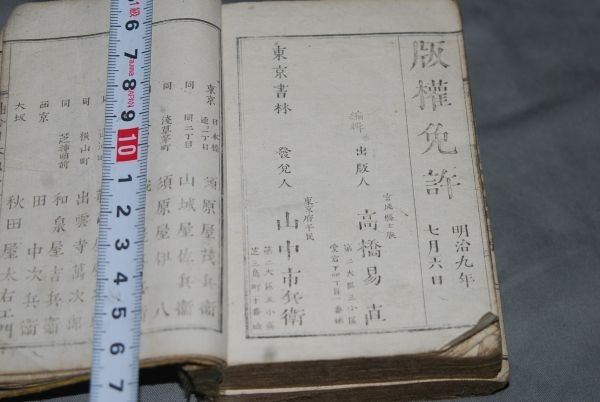 版權免許
明治九年
七月六日
宮城縣士族
編輯 出版人 高橋易直
第二大區三小區
東京書林
發兌人
東京府平民
山中市兵衛
第二大區五小區
芝三島町十番地
東京
日本橋
通一丁目
須原屋茂兵衛
同
同二丁目
山城屋佐兵衛
同
淺草茅町
須原屋伊八
同
横山町
出雲寺萬次郎
同
芝神明前
和泉屋吉兵衛
西京
田中次兵衛
大坂
秋田屋太右エ門
6 7 8 9 10 1 2 3 4 5 6 7